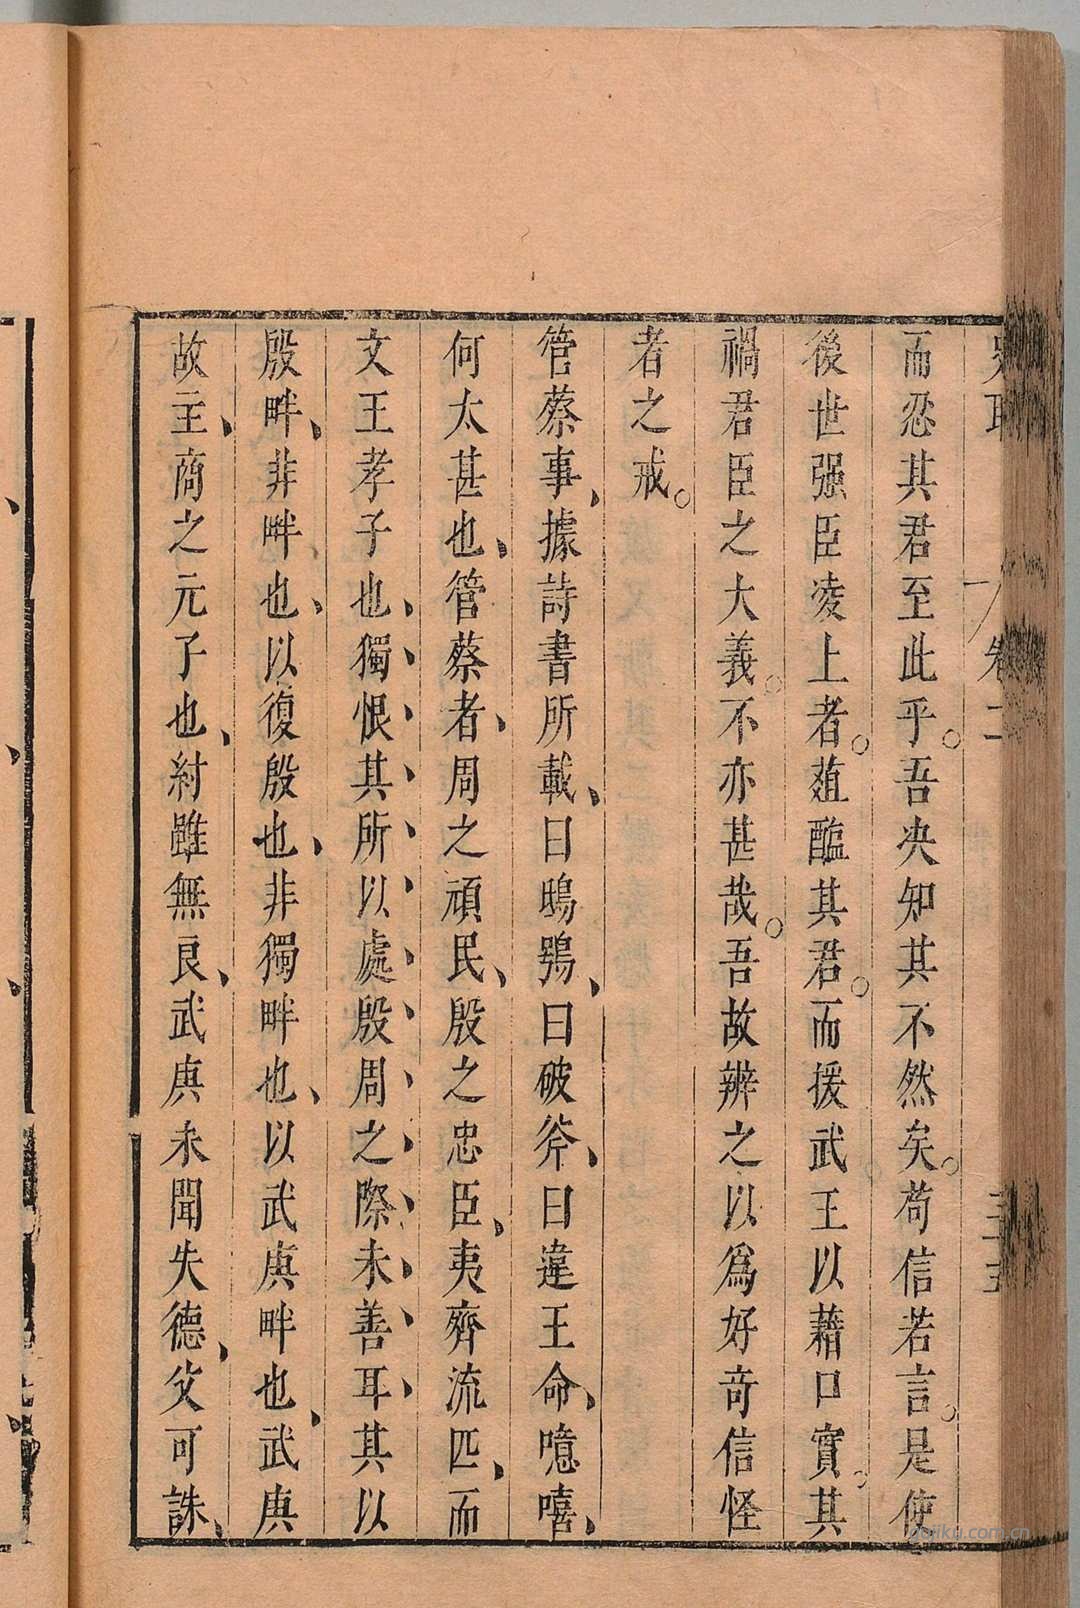 卷二
而忍其君至此乎吾決知其不然矣苟信若言是使
後世强臣凌上者葅醢其君而援武王以藉口實其
禍君臣之大義不亦甚哉吾故辨之以爲好奇信怪
者之戒
管蔡事據詩書所載曰鴟鴞曰破斧曰違王命噫嘻
何太甚也管蔡者周之頑民殷之忠臣夷齊流匹而
文王孝子也獨恨其所以處殷周之際未善耳其以
殷畔非畔也以復殷也非獨畔也以武庚畔也武庚
故主商之元子也紂雖無良武庚未聞失德父可誅